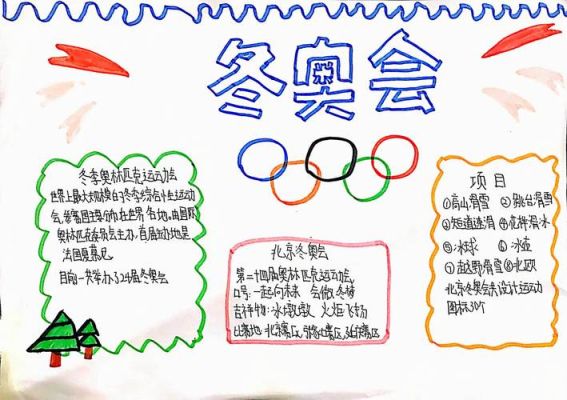 冬奥会
冬季奥林匹克运动会
世界上最大规模的冬季综合性运动
会,参赛国主要分布在世界各地,由国际
奥林匹克委员会主办,首届举办地是
法国夏慕尼
目前一共举办了24届冬奥会
北京冬奥会
第二十四届奥林匹克运动会
口号:一起向未来
吉祥物:冰墩墩 火炬飞扬
比赛地:北京赛区,张家口赛区,延庆赛区
项目
①高山滑雪 ②跳台滑雪
③短道速滑 ④花样滑冰
⑤冰球 ⑥冰壶
⑦越野滑雪 ⑧北欧
北京冬奥会共设计运动
图标30个